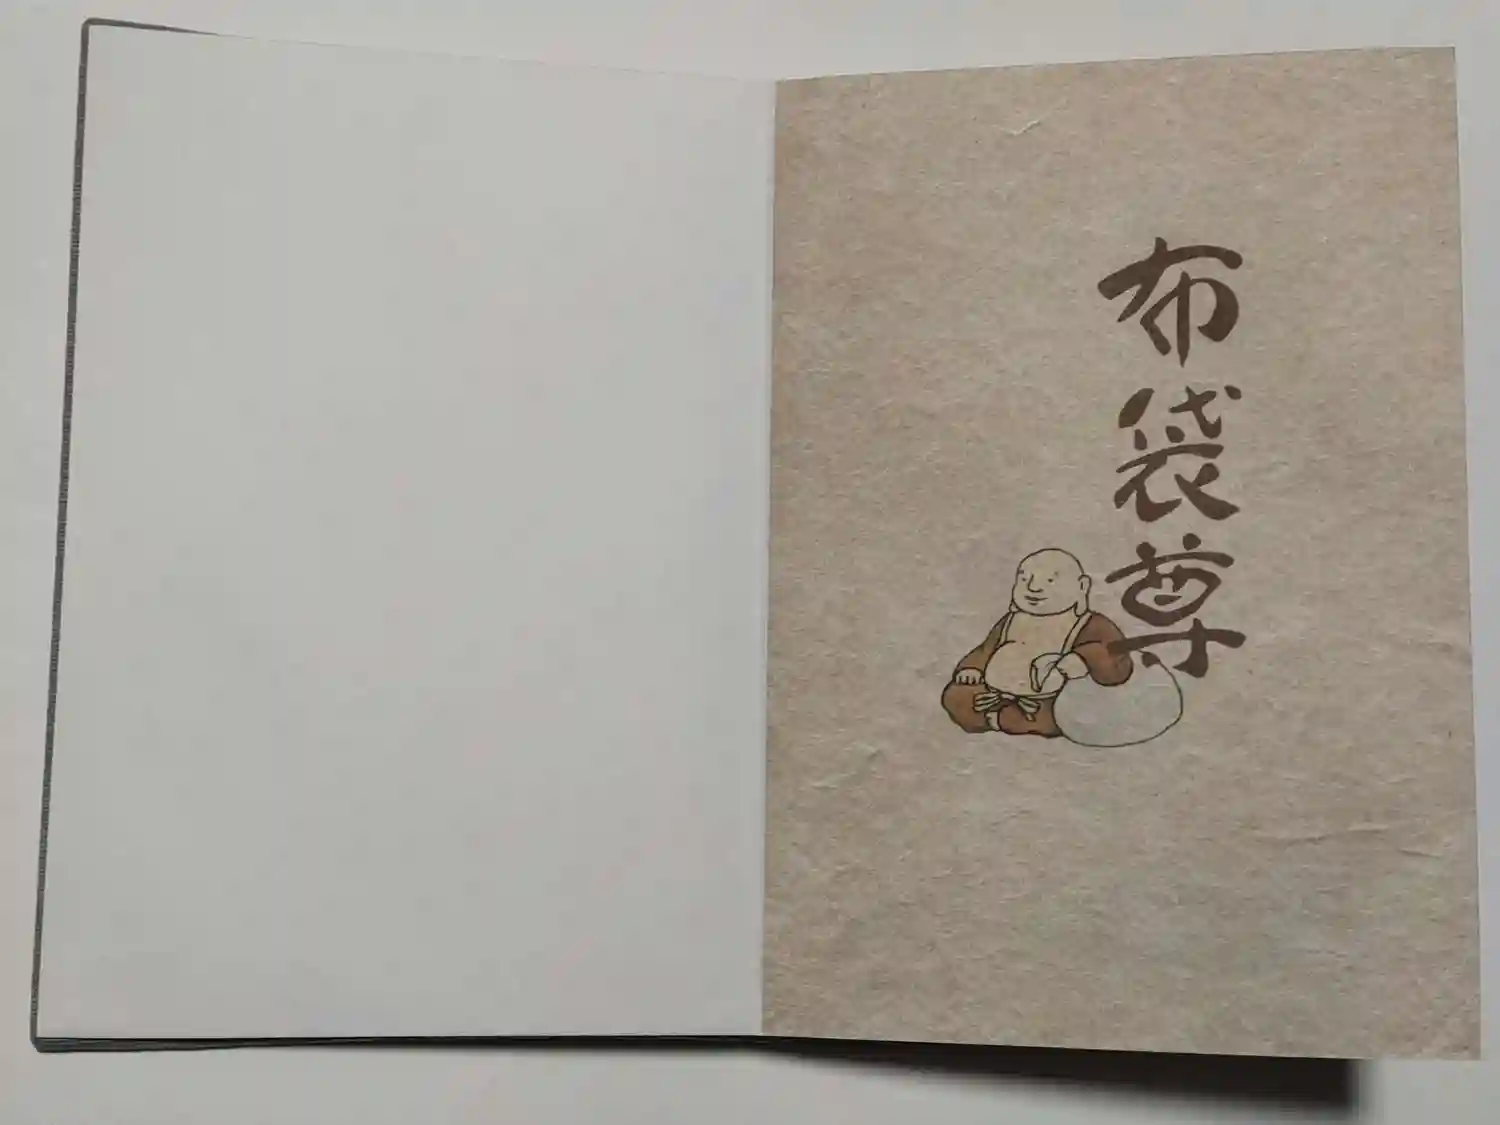 布袋尊